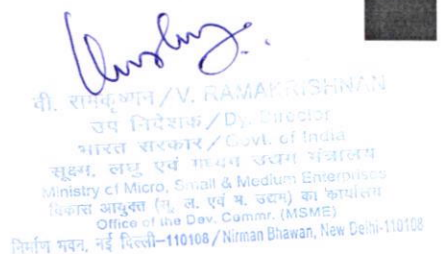 वी. रामकृष्णन/V. RAMAKRISHNAN
उप निदेशक/Dy. Director
भारत सरकार/Govt. of India
सूक्ष्म, लघु एवं मध्यम उद्यम मंत्रालय
Ministry of Micro, Small & Medium Enterprises
विकास आयुक्त (सू. ल. एवं म. उद्यम) का कार्यालय
Office of the Dev. Commr. (MSME)
निर्माण भवन, नई दिल्ली–110108/Nirman Bhawan, New Delhi-110108